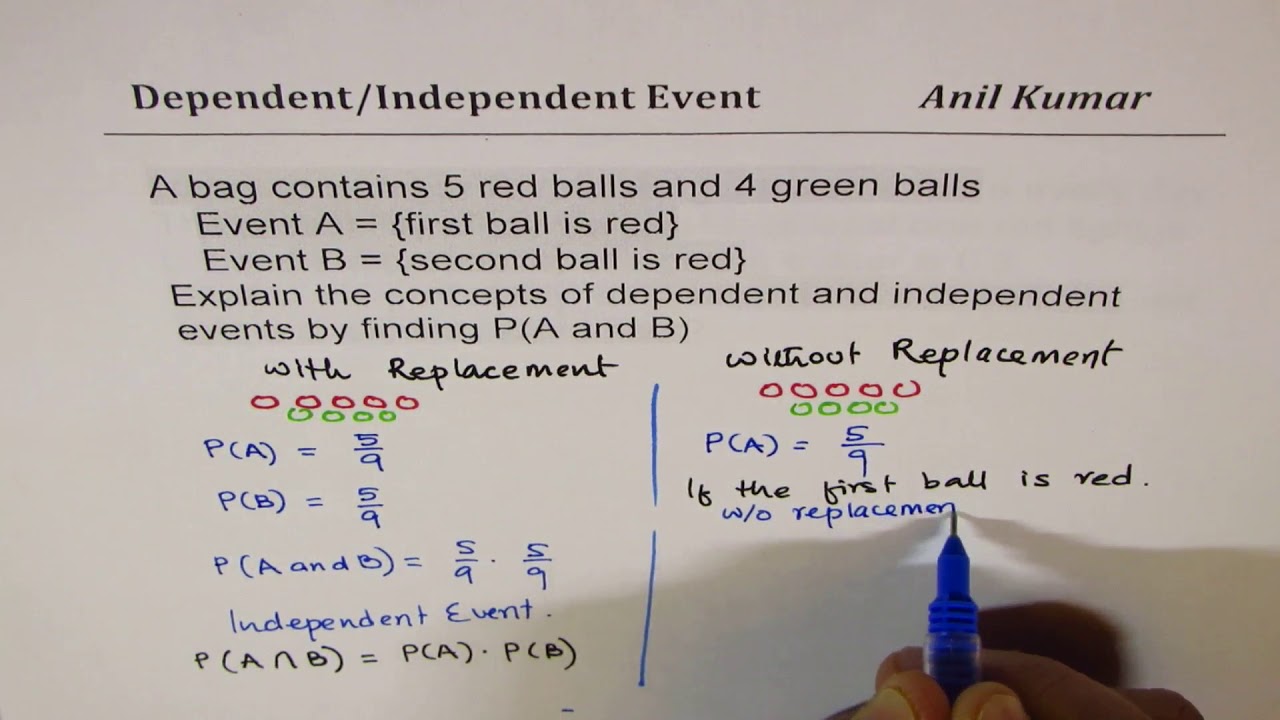 Dependent/Independent Event Anil Kumar
A bag contains 5 red balls and 4 green balls
Event A = {first ball is red}
Event B = {second ball is red}
Explain the concepts of dependent and independent
events by finding P(A and B)
with Replacement
P(A) = 5/9
P(B) = 5/9
P(A and B) = 5/9 · 5/9
Independent Event.
P(A ∩ B) = P(A) · P(B)
without Replacement
P(A) = 5/9
If the first ball is red.
w/o replacemen